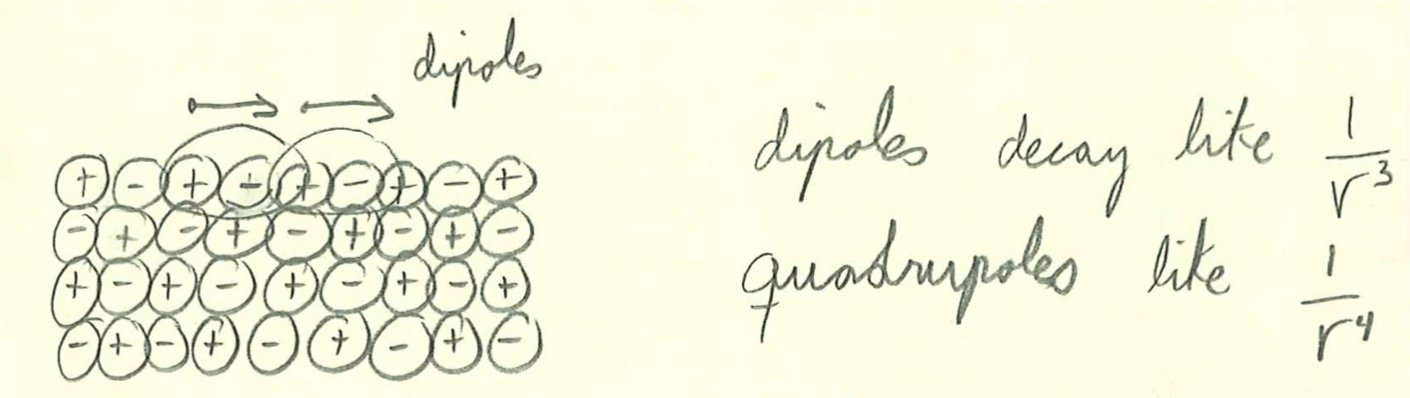 dipoles
dipoles decay like 1/r³
quadrupoles like 1/r⁴
+ - + - + - + - +
- + - + - + - + -
+ - + - + - + - +
- + - + - + - + -